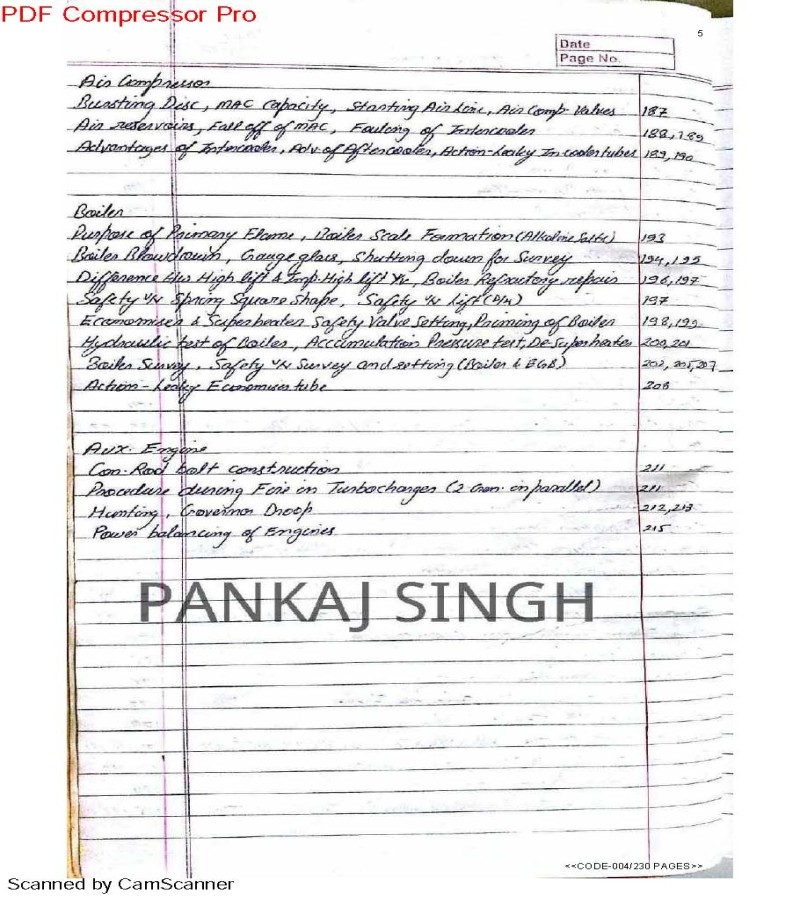 PDF Compressor Pro
5
Date
Page No.
Air Compressor
Bursting Disc, MAC capacity, Starting Air Line, Air Comp. Valves 187
Air reservoirs, Fall off of MAC, Fouling of Intercooler 188, 189
Advantages of Intercooler, Adv. of Aftercooler, Action-Leaky Incooler tubes 189, 190
Boiler
Purpose of Primary Flame, Boiler Scale Formation (Alkaline Salts) 193
Boiler Blowdown, Gauge glass, Shutting down for Survey 194, 195
Difference b/w High lift & Imp. High lift v/v, Boiler Refractory repair 196, 197
Safety v/v Spring Square Shape, Safety v/v lift (D/4) 197
Economiser & Superheater Safety Valve Setting, Priming of Boiler 198, 199
Hydraulic test of Boiler, Accumulation Pressure test, De-Superheater 200, 201
Boiler Survey, Safety v/v Survey and setting (Boiler & EGB) 202, 205, 207
Action - Leaky Economiser tube 208
Aux. Engine
Con. Rod bolt construction 211
Procedure during Fire in Turbocharger (2 Gen. in parallel) 211
Hunting, Governor Droop 212, 213
Power balancing of Engines 215
PANKAJ SINGH
<<CODE-004/230 PAGES>>
Scanned by CamScanner